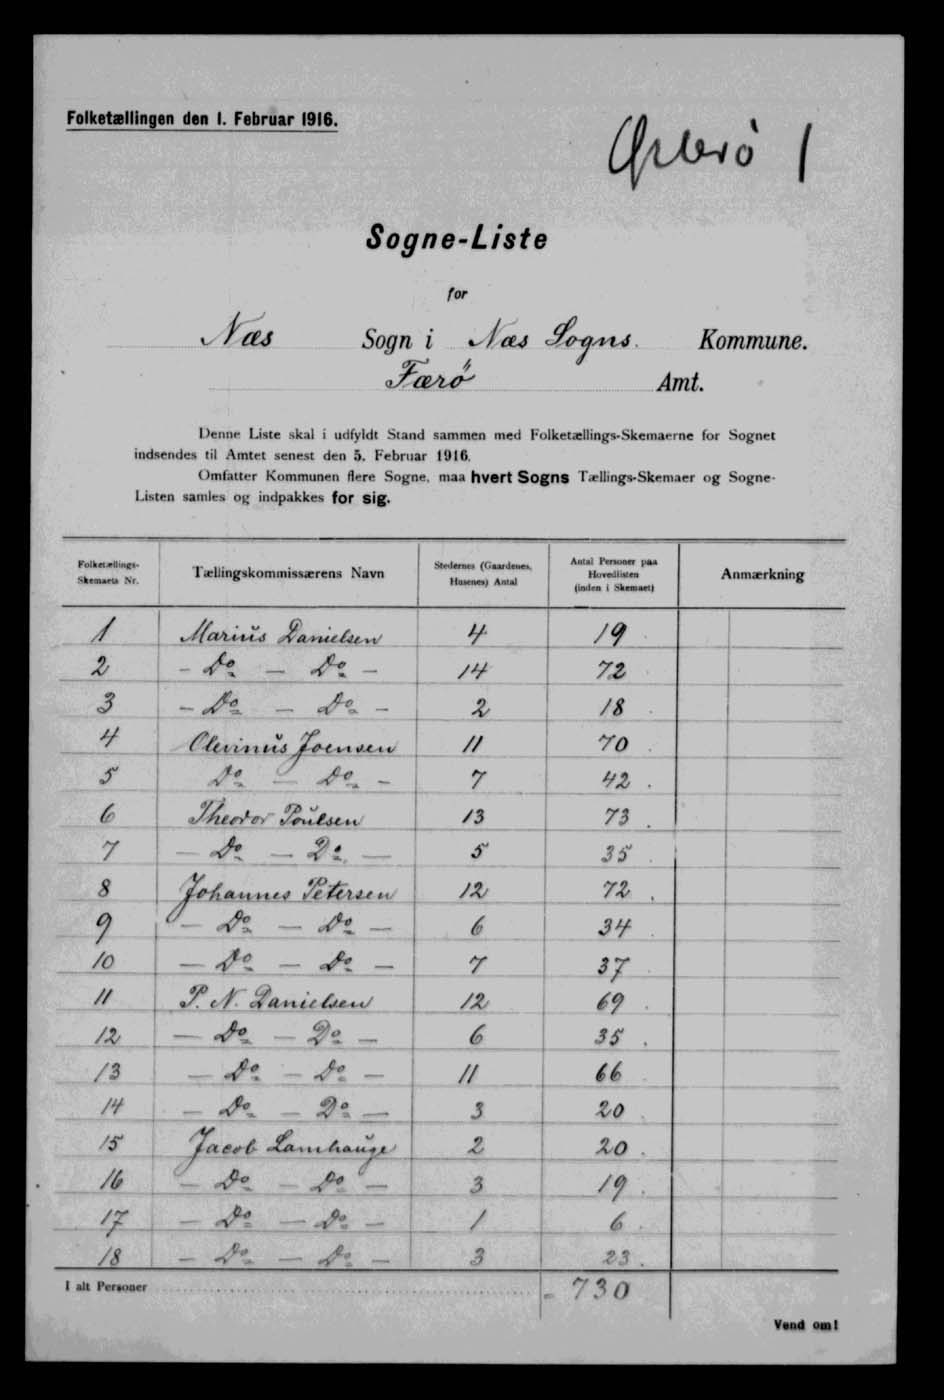 Folketællingen den 1. Februar 1916.
Østerø 1
Sogne-Liste
for
Næs Sogn i Næs Sogns. Kommune.
Færø Amt.
Denne Liste skal i udfyldt Stand sammen med Folketællings-Skemaerne for Sognet
indsendes til Amtet senest den 5. Februar 1916.
Omfatter Kommunen flere Sogne, maa hvert Sogns Tællings-Skemaer og Sogne-
Listen samles og indpakkes for sig.
Folketællings-Skemaets Nr. Tællingskommissærens Navn Stedernes (Gaardenes, Husenes) Antal Antal Personer paa Hovedlisten (inden i Skemaet) Anmærkning
1 Marius Danielsen 4 19
2 - Do - Do - 14 72
3 - Do - Do - 2 18
4 Olevinus Joensen 11 70
5 Do - Do - 7 42
6 Theodor Poulsen 13 73
7 - Do - Do - 5 35
8 Johannes Petersen 12 72
9 - Do - Do - 6 34
10 - Do - Do - 7 37
11 P. N. Danielsen 12 69
12 - Do - Do - 6 35
13 - Do - Do - 11 66
14 - Do - Do - 3 20
15 Jacob Lamhauge 2 20
16 - Do - Do - 3 19
17 - Do - Do - 1 6
18 - Do - Do - 3 23
I alt Personer = 730
Vend om!